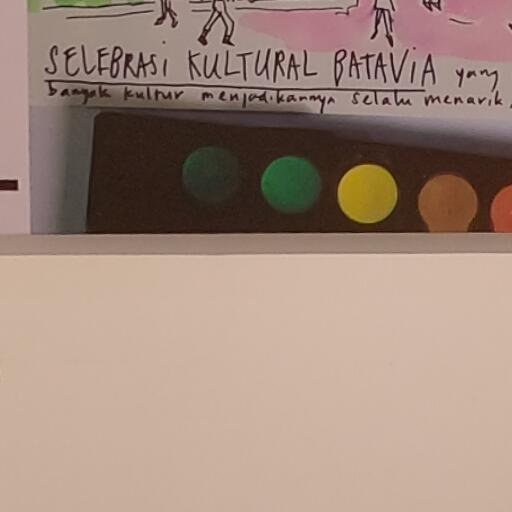 SELEBRASI KULTURAL BATAVIA yang
banyak kultur menjadikannya selalu menarik.